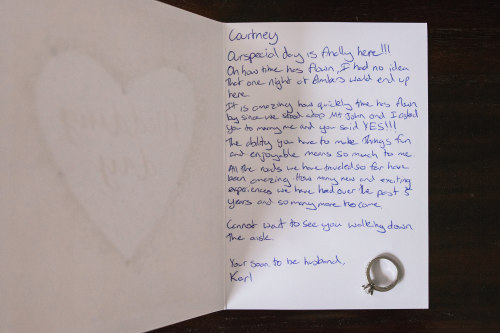 Courtney
Our special day is finally here!!!
Oh how time has flown, I had no idea
that one night at Ambars would end up
here.
It is amazing how quickly time has flown
by since we stood atop Mt John and I asked
you to marry me and you said YES!!!
The ability you have to make things fun
and enjoyable means so much to me.
All the roads we have traveled so far have
been amazing. How many new and exciting
experiences we have had over the past 5
years and so many more to come.
Cannot wait to see you walking down
the aisle.
Your soon to be husband,
Karl